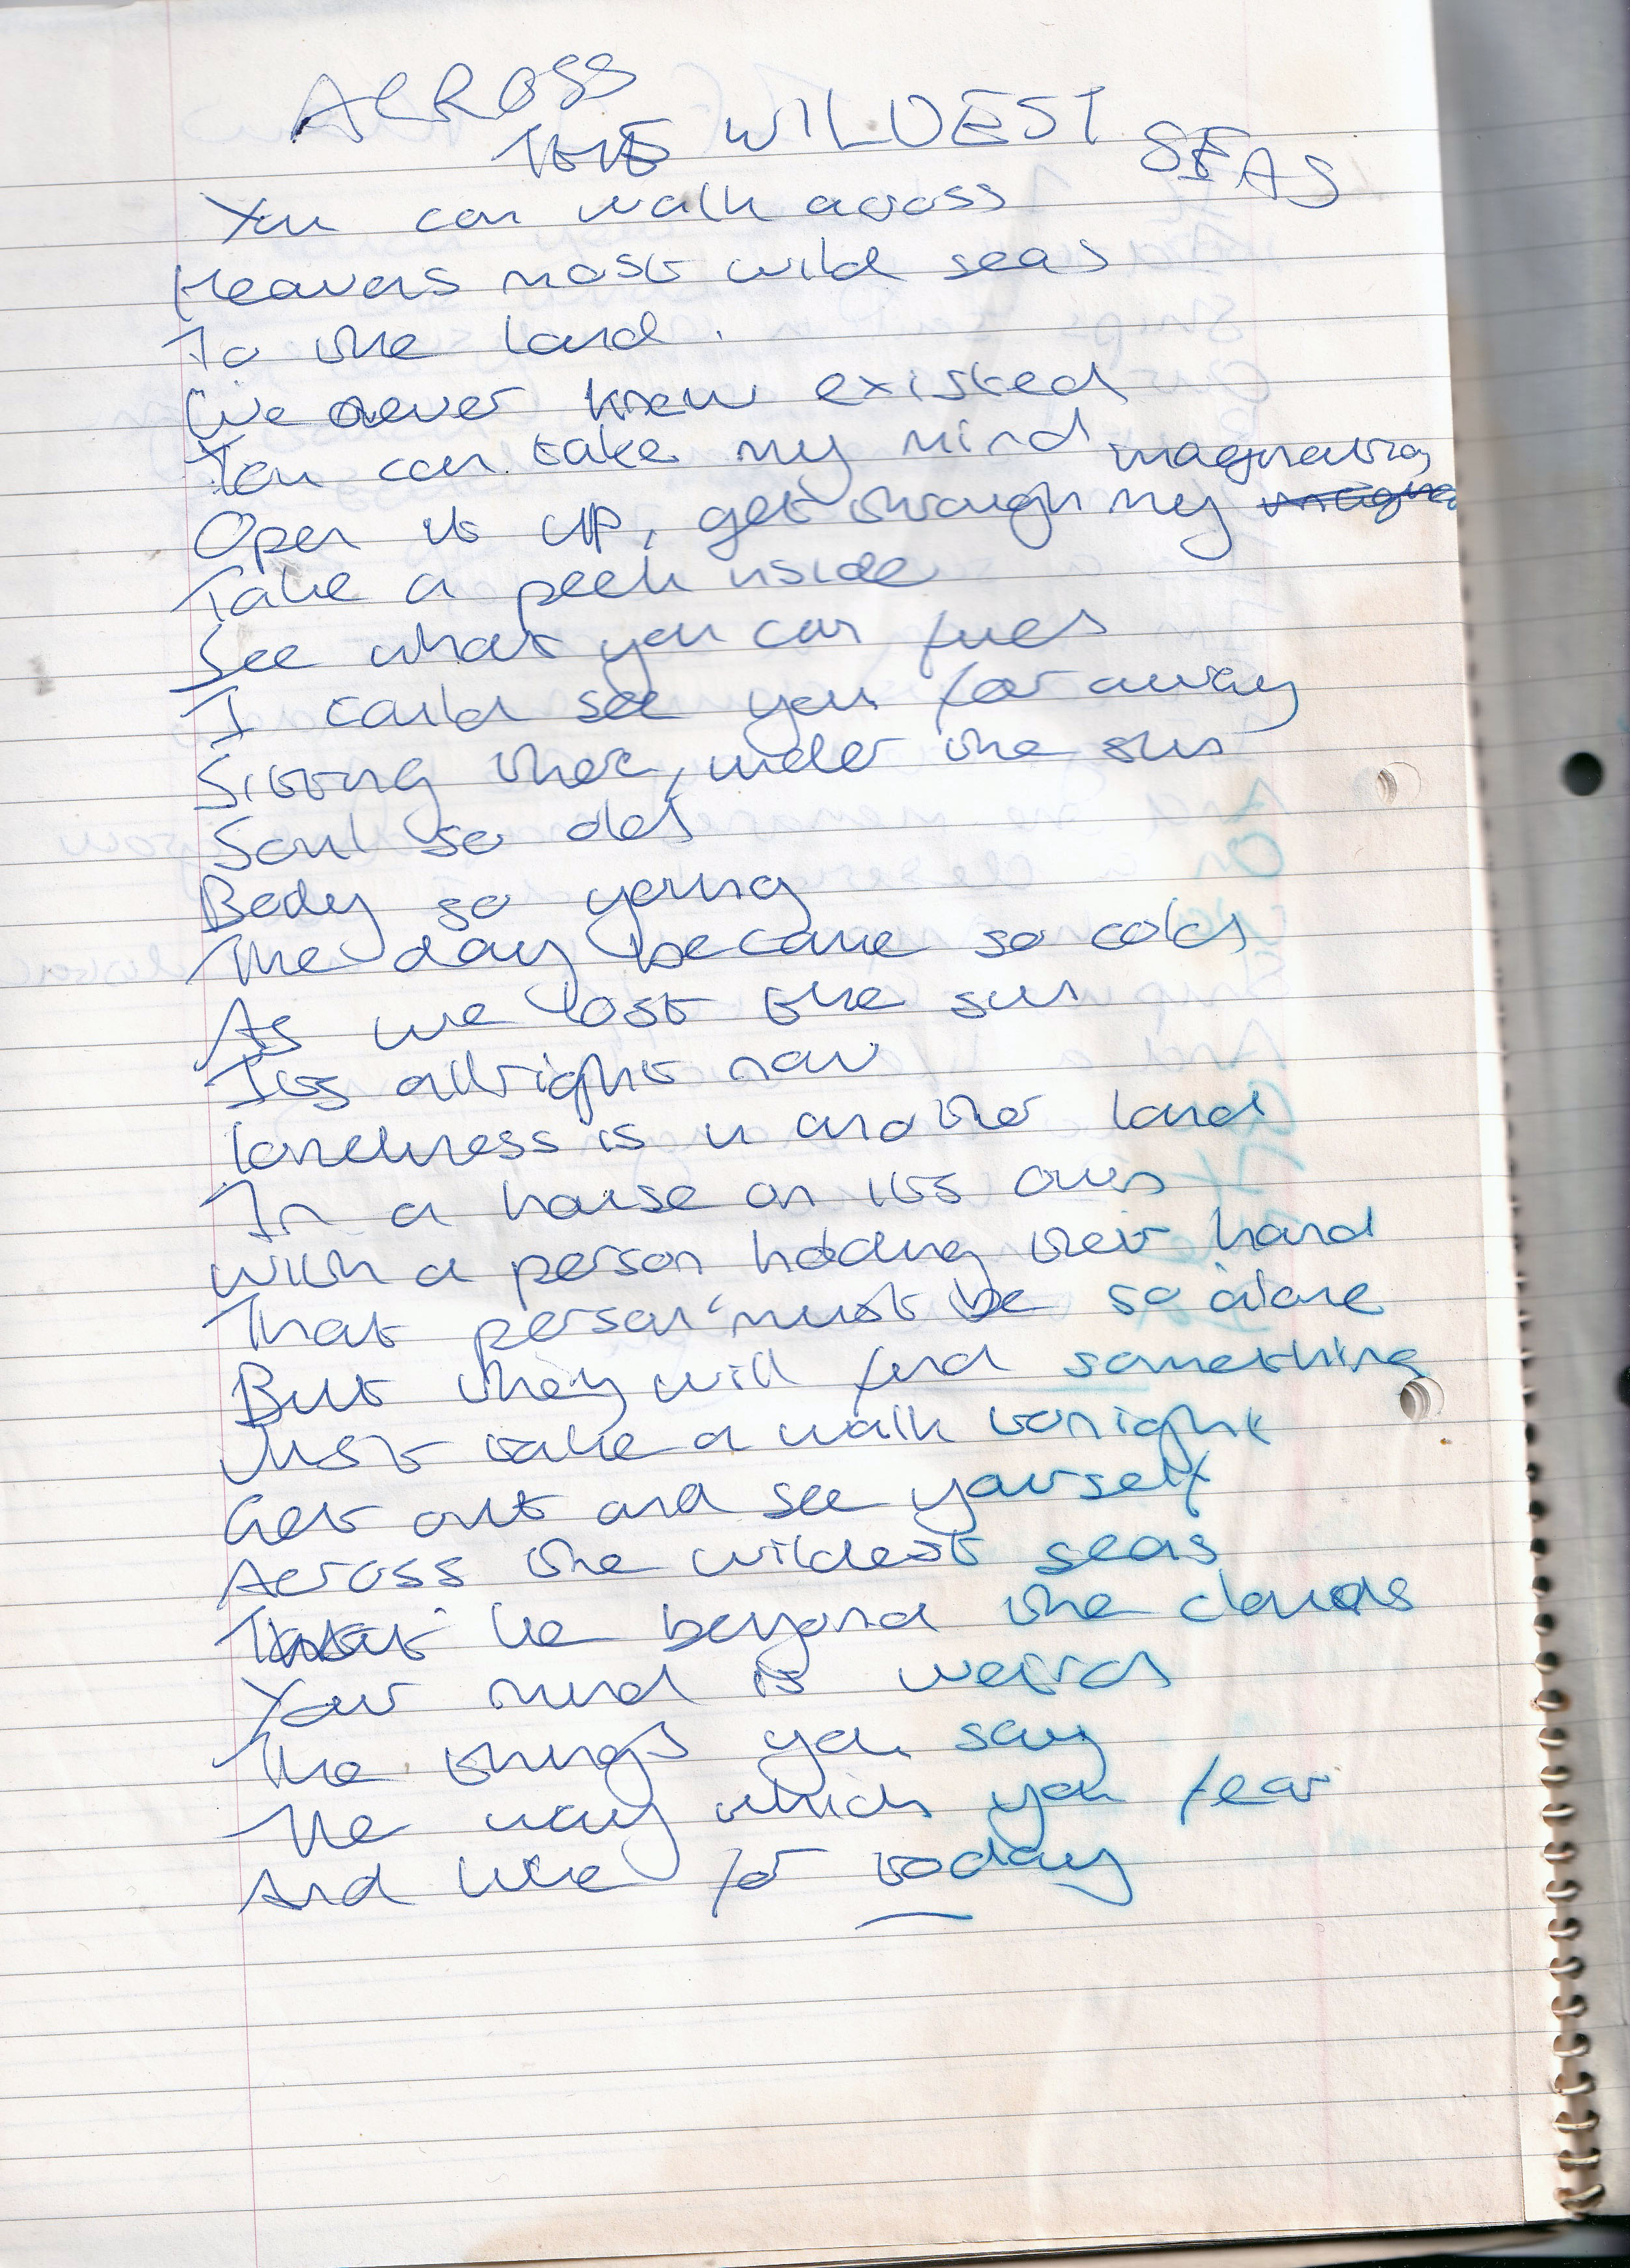 ACROSS
THE WILDEST SEAS
You can walk across
Heavens most wild seas
To the land.
I've never knew existed
You can take my mind
imagination
Open it up, get through my
Take a peek inside
See what you can find
I could see you far away
Sitting there, under the sun
Soul so old
Body so young
The day became so cold
As we lost the sun
Its allright now
Loneliness is in another land
In a house on its own
With a person holding their hand
That person must be so alone
But they will find something
Just take a walk tonight
Get out and see yourself
Across the wildest seas
That lie beyond the clouds
Your mind is weird
The things you say
The way which you fear
And live for today